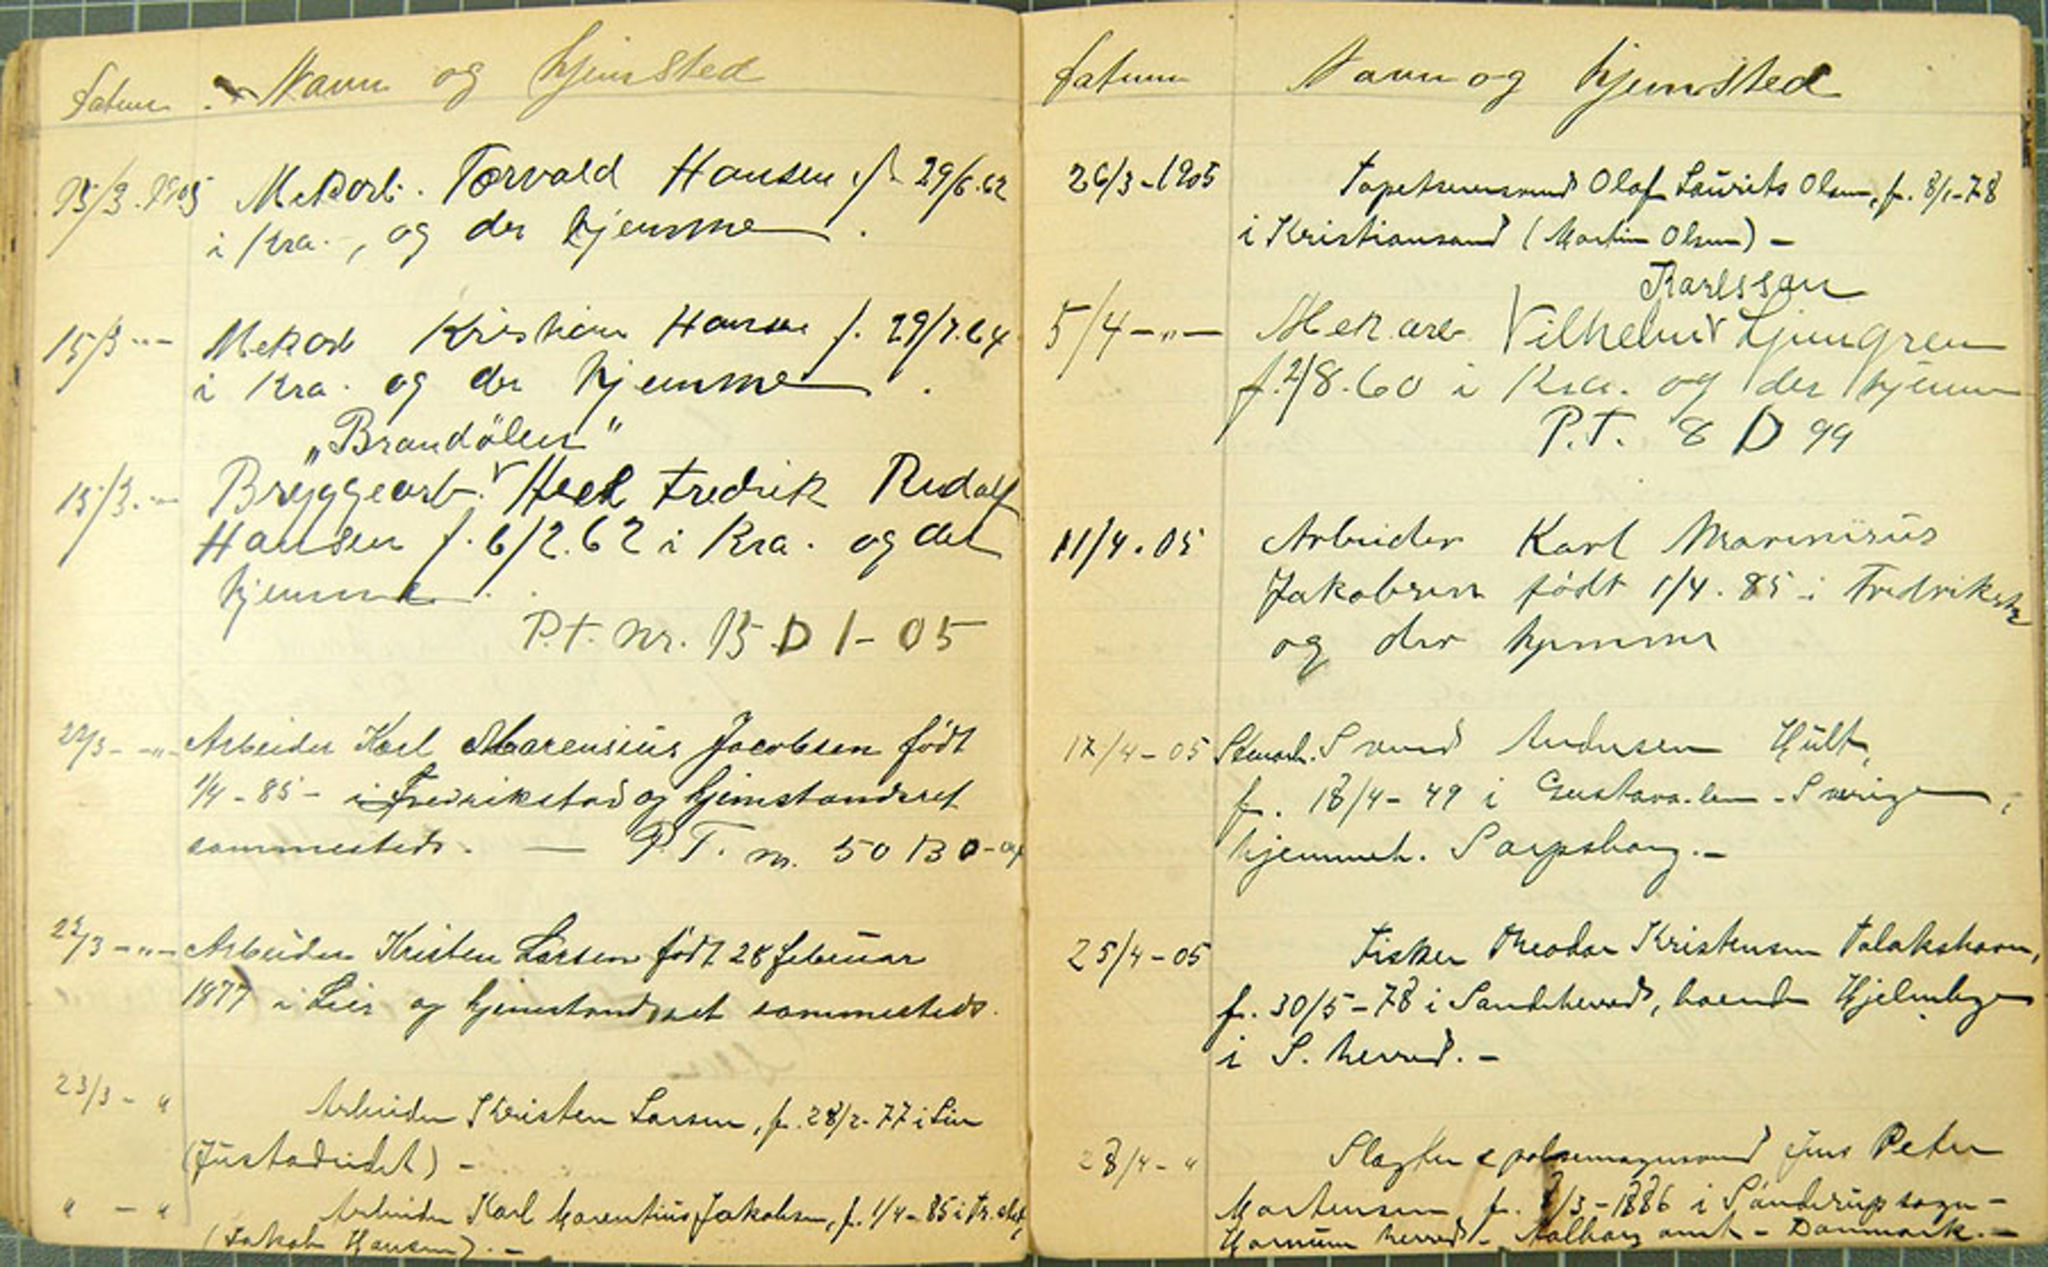 Datum Navn og hjemsted
15/3.1905 Mek.arb. Torvald Hansen f. 29/6.62
i Kra., og der hjemme.
15/3 -"- Mek arb Kristian Hansen f. 29/7.64
i Kra. og der hjemme.
"Brandølen"
15/3.-"- Bryggearb. Fredrik Rudolf
Hansen f. 6/2.62 i Kra. og der
hjemme.
P.T. nr. 15 D 1-05
22/3- -"- Arbeider Karl Marensius Jacobsen født
1/4-85- i Fredrikstad og hjemstandsret
sammesteds. — P.T. nr. 50 B
22/3 -"- Arbeider Kristen Larsen født 28 februar
1877 i Lier og hjemstandsret sammesteds.
23/3 - " Arbeider Kristen Larsen, f. 28/2-77 i Lier
(Justadeidet) -
" - " Arbeider Karl Marentius Jakobsen, f. 1/4-85 i Fr.stad,
(Jakob Hansen). -
Datum Navn og hjemsted
26/3-1905 Tapetserersvend Olaf Laurits Olsen, f. 8/1-78
i Kristiansand (Martin Olsen) -
Karlsson
5/4 -"- Mek. arb. Vilhelm Ljungren
f. 2/8.60 i Kra. og der hjemme
P.T. 8 D 99
11/4.05 Arbeider Karl Marinisius
Jakobsen født 1/4.85 i Fredrikstad
og der hjemme
17/4-05 Stenarb. Svend Andersen Hult,
f. 18/4-49 i - Sverige,
hjemmeh. Sarpsborg.-
25/4-05 Fisker Theodor Kristensen Talakshavn,
f. 30/5-78 i Sandeherred, boende
i S. herred. -
28/4-" Slagter & pølsemagersvend Jens Peter
Mortensen, f. /3-1886 i Sønderup sogn-
Hornum herred - Aalborg amt - Danmark.-